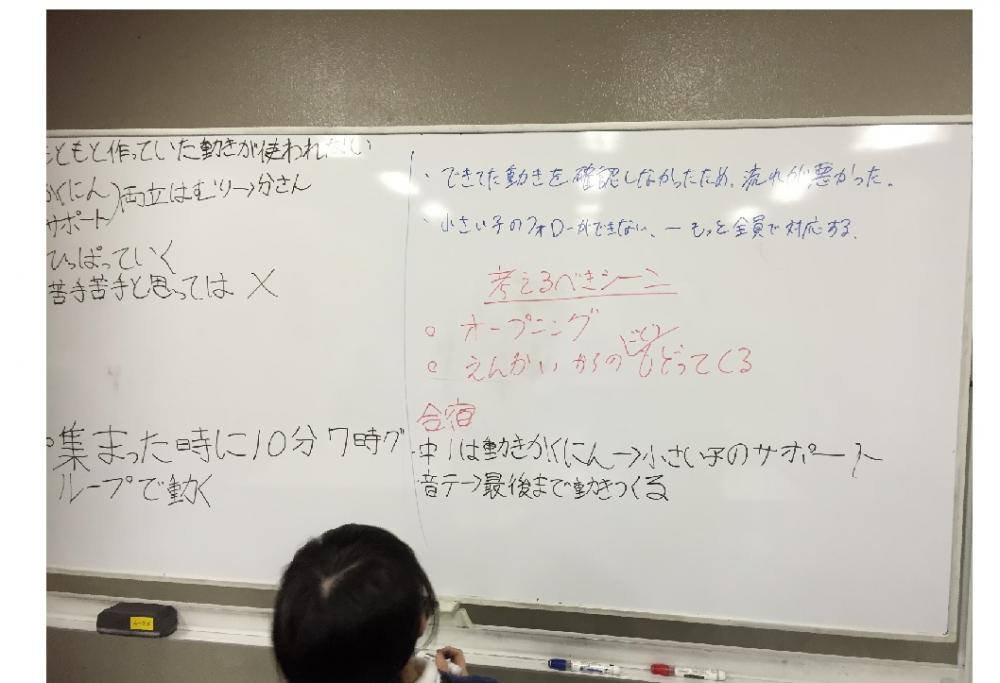 ともと作っていた動きが使われない
くにん)両立はむりー>分さん
サポート
ひっぱっていく
苦手苦手と思っては×
○集まった時に10分7時グ
ループで動く
・できてた動きを確認しなかったため、流れが悪かった。
・小さい子のフォローができない、ーもっと全員で対応する。
考えるべきシーン
○ オープニング
○ えんかいからのもどってくる
合宿
・中1は動きかくにんー>小さい子のサポート
音テー>最後まで動きつくる